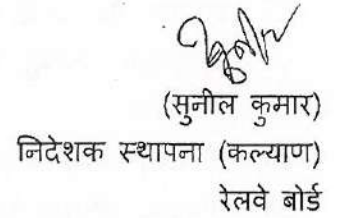 (सुनील कुमार)
निदेशक स्थापना (कल्याण)
रेलवे बोर्ड